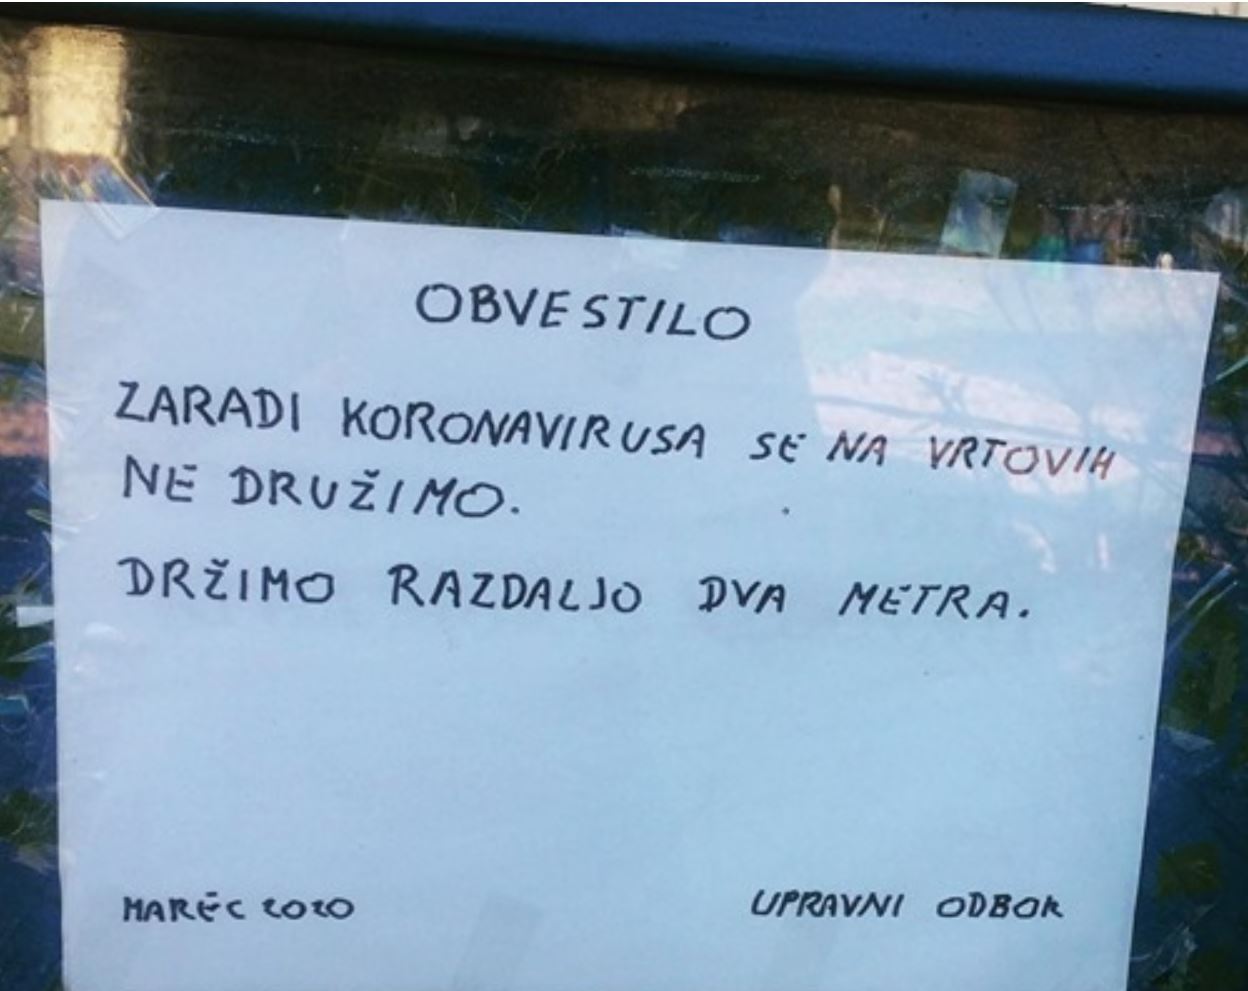 OBVESTILO
ZARADI KORONAVIRUSA SE NA VRTOVIH
NE DRUŽIMO.
DRŽIMO RAZDALJO DVA METRA.
MAREC 2020 UPRAVNI ODBOR